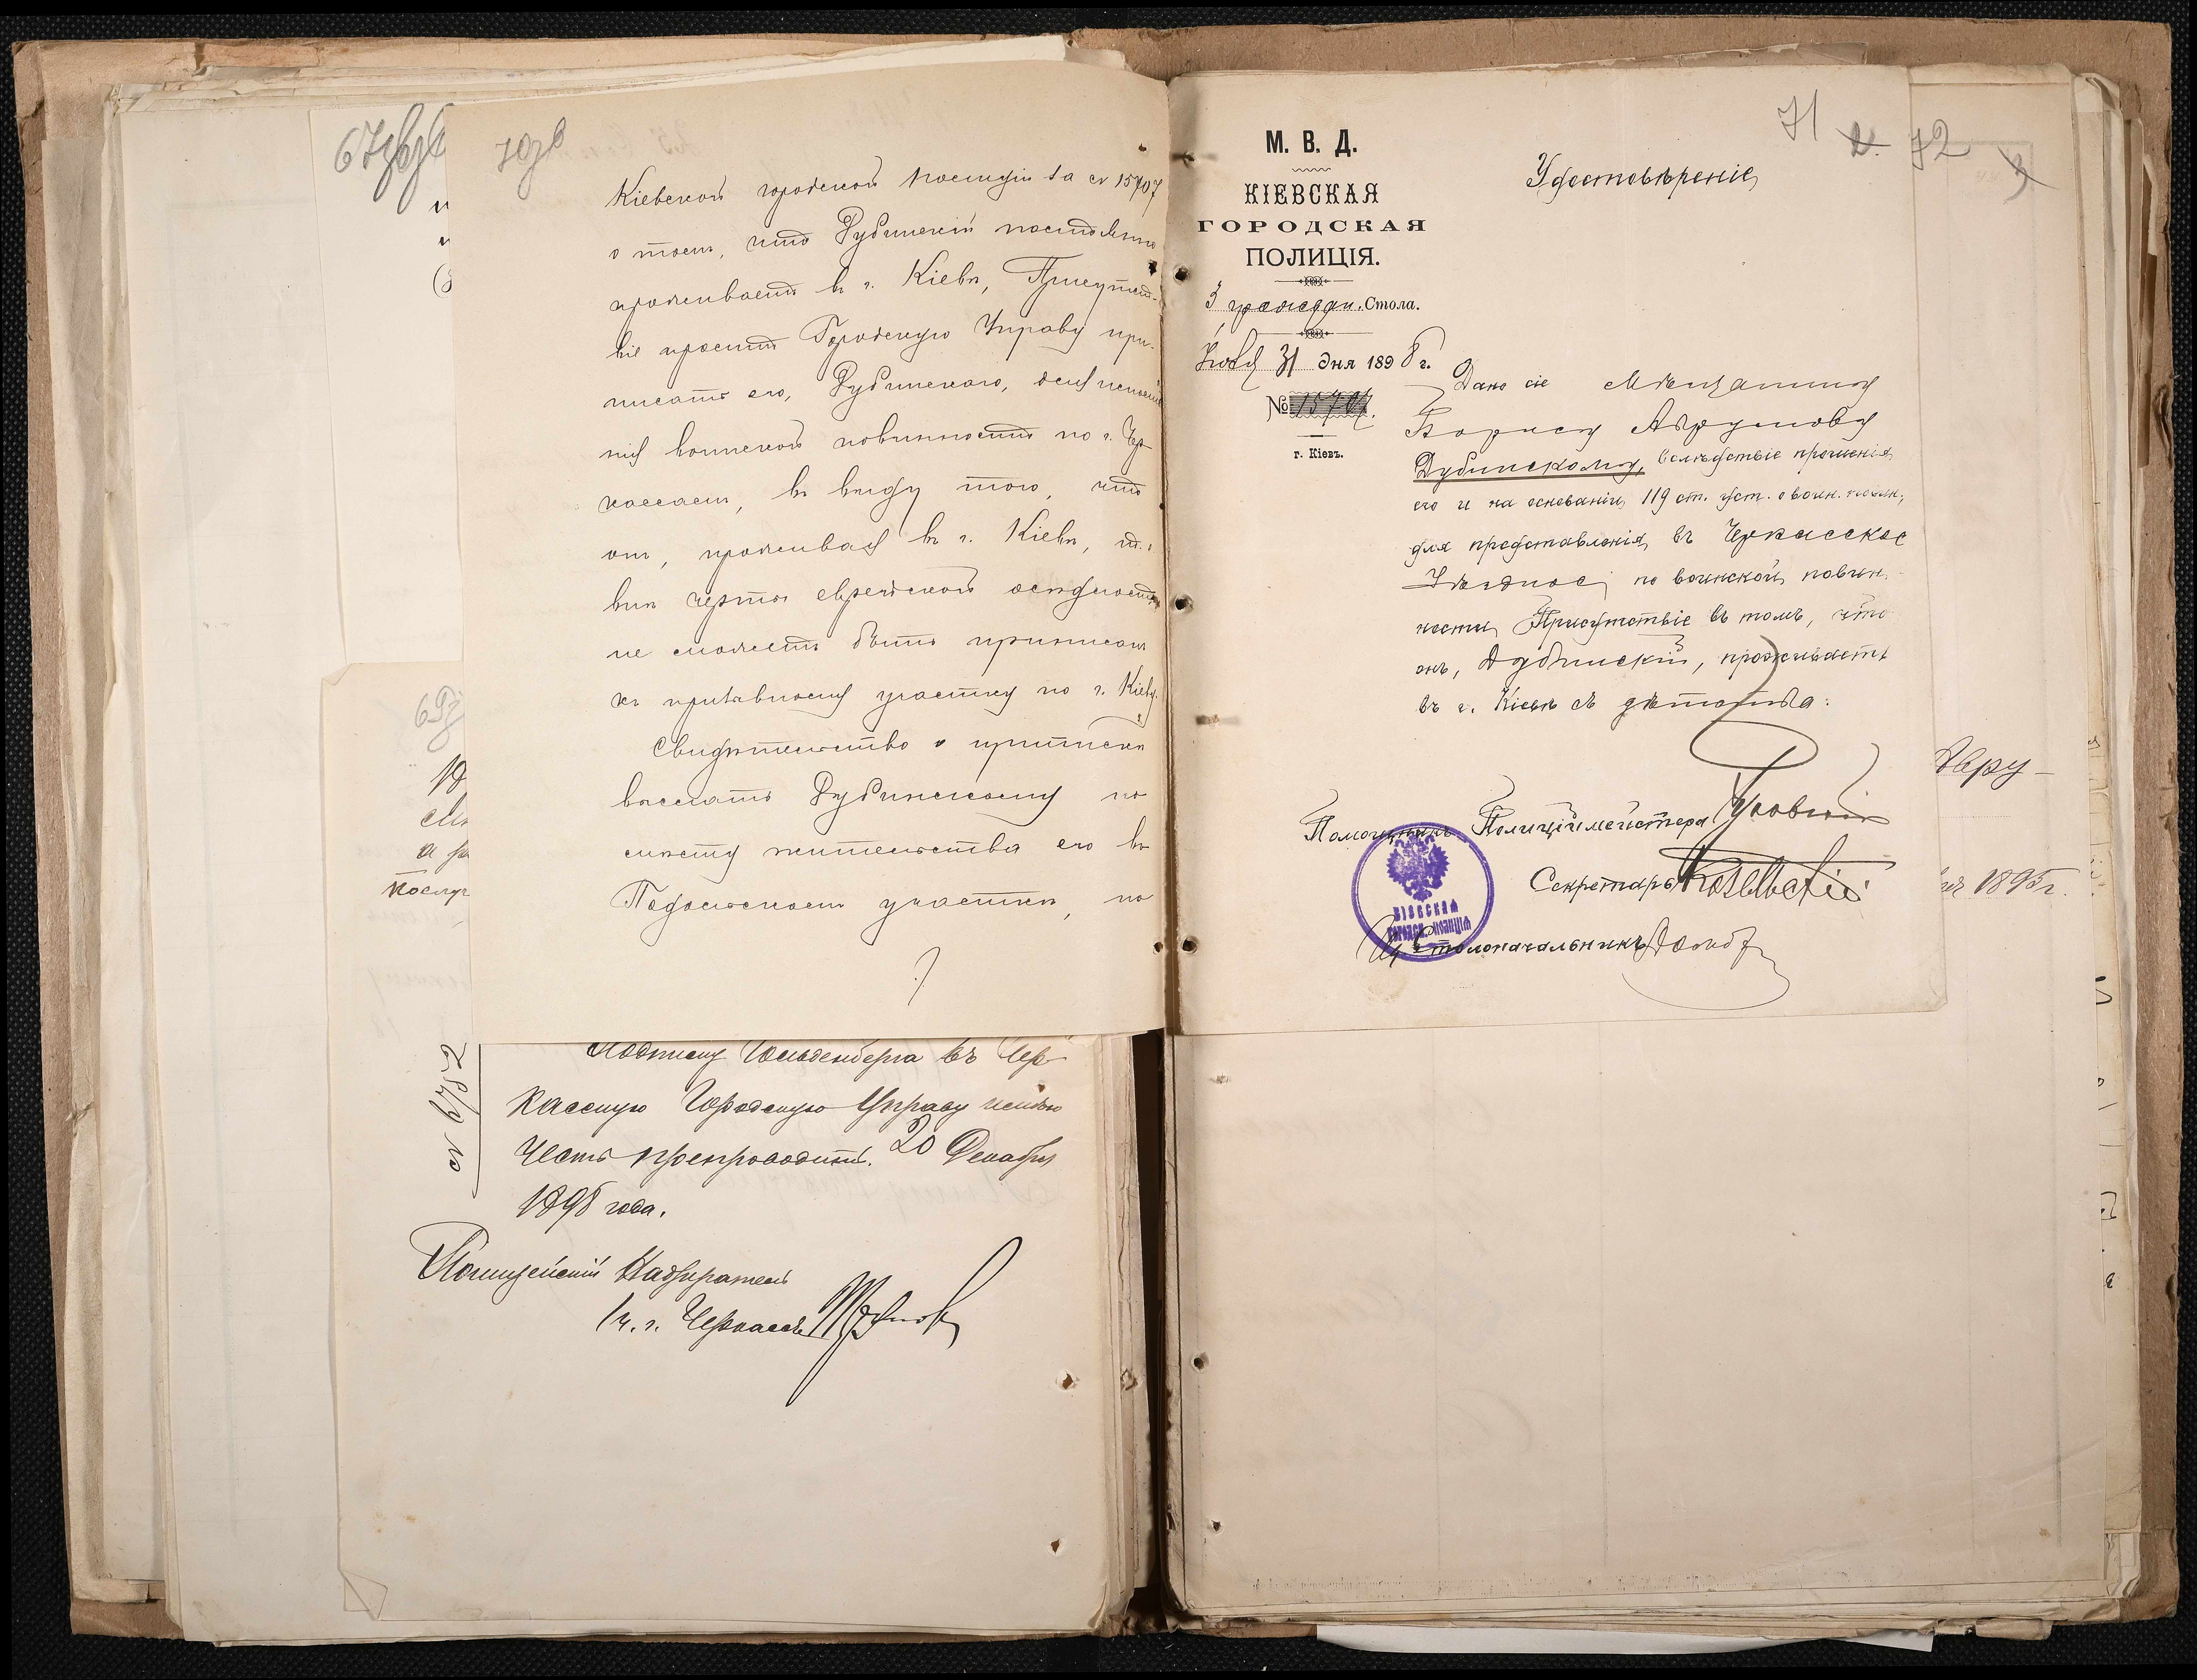 67зв
70зв
Кіевской городской полиціи за № 15707
о томъ, что Дубинскій постоянно
проживаетъ въ г. Кіевѣ, Присутст-
віе проситъ Городскую Управу при-
писать его, Дубинскаго, для исполне-
нія воинской повинности по г. Чер-
кассамъ, въ виду того, что
онъ, проживая въ г. Кіевѣ, т. е.
внѣ черты еврейской осѣдлости
не можетъ быть приписанъ
къ призывному участку по г. Кіеву.
Свидѣтельство о припискѣ
выслать Дубинскому по
мѣсту жительства его въ
Подольскомъ участкѣ, по
69з
№ 6752
Подписку Гольденберга въ Чер-
касскую Городскую Управу имѣю
честь препроводить. 20 Декабря
1898 года.
Полицейскій Надзиратель
1 ч. г. Черкассъ
71 72
М. В. Д.
КІЕВСКАЯ
ГОРОДСКАЯ
ПОЛИЦІЯ.
3 граждан. Стола.
31 дня 1898 г.
№ 15707.
г. Кіевъ.
Удостовѣреніе
Дано сіе Мѣщанину
Борису Аврумову
Дубинскому, вслѣдствіе прошенія
его и на основаніи 119 ст. уст. о воин. повин.,
для представленія въ Черкасское
Уѣздное по воинской повин-
ности Присутствіе въ томъ, что
онъ, Дубинскій, проживаетъ
въ г. Кіевѣ съ дѣтства.
Помощникъ Полиціймейстера
Секретарь
Столоначальникъ
КІЕВСКАЯ
ГОРОДСК. ПОЛИЦІЯ
Авру-
1895 г.